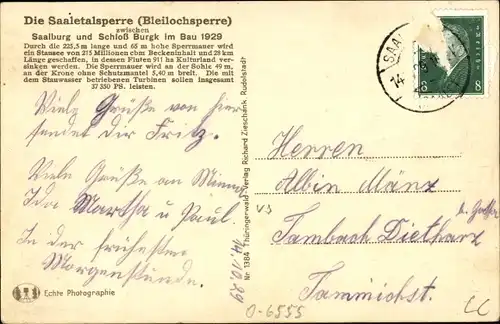 Die Saaletalsperre (Bleilochsperre)
zwischen
Saalburg und Schloß Burgk im Bau 1929
Durch die 225,5 m lange und 65 m hohe Sperrmauer wird
ein Stausee von 215 Millionen cbm Beckeninhalt und 28 km
Länge geschaffen, in dessen Fluten 911 ha Kulturland ver-
sinken werden. Die Sperrmauer wird an der Sohle 49 m,
an der Krone ohne Schutzmantel 5,40 m breit. Die mit
dem Stauwasser betriebenen Turbinen sollen insgesamt
37 350 PS. leisten.
Viele Grüße von hier
sendet der Fritz.
Viele Grüße an Minna
Ida Martha u Paul.
In der frühesten
Morgenstunde.
Echte Photographie
Nr 1384 Thüringerwald-Verlag Richard Zieschank Rudolstadt
14.10.29
SAAL
14
8 8
Herren
Albin Mänz
V3
b. Gotha
Tambach Dietharz
Tammichst.
0-6555
CC